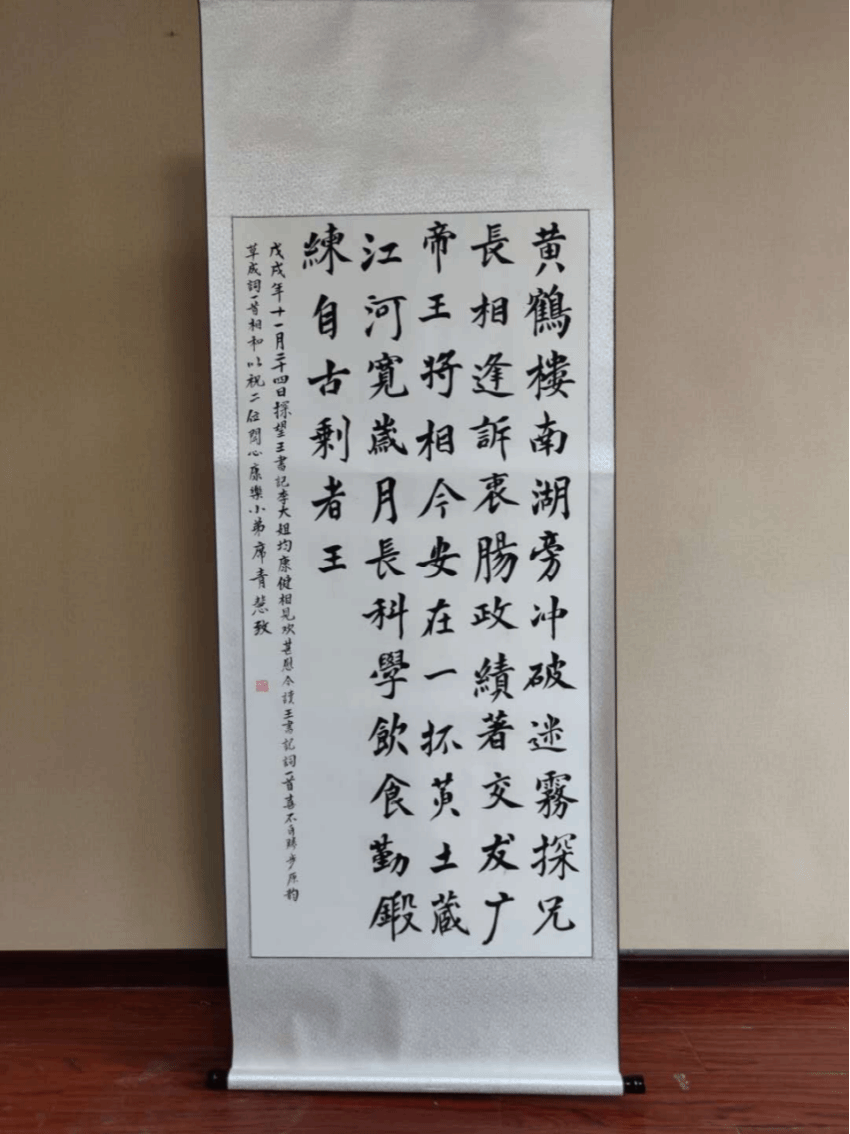 黄鶴楼南湖旁冲破迷霧探兄
長相逢訴衷腸政績著交友广
帝王将相今安在一抔黄土蔵
江河寛歳月長科學飲食勤鍛
練自古剩者王
戊戌年十一月二十四日探望王書記李大姐均康健相見欢甚慰今讀王書記詞一首喜不自勝步原韵
草成詞一首相和以祝二位開心康樂小弟席青慧致